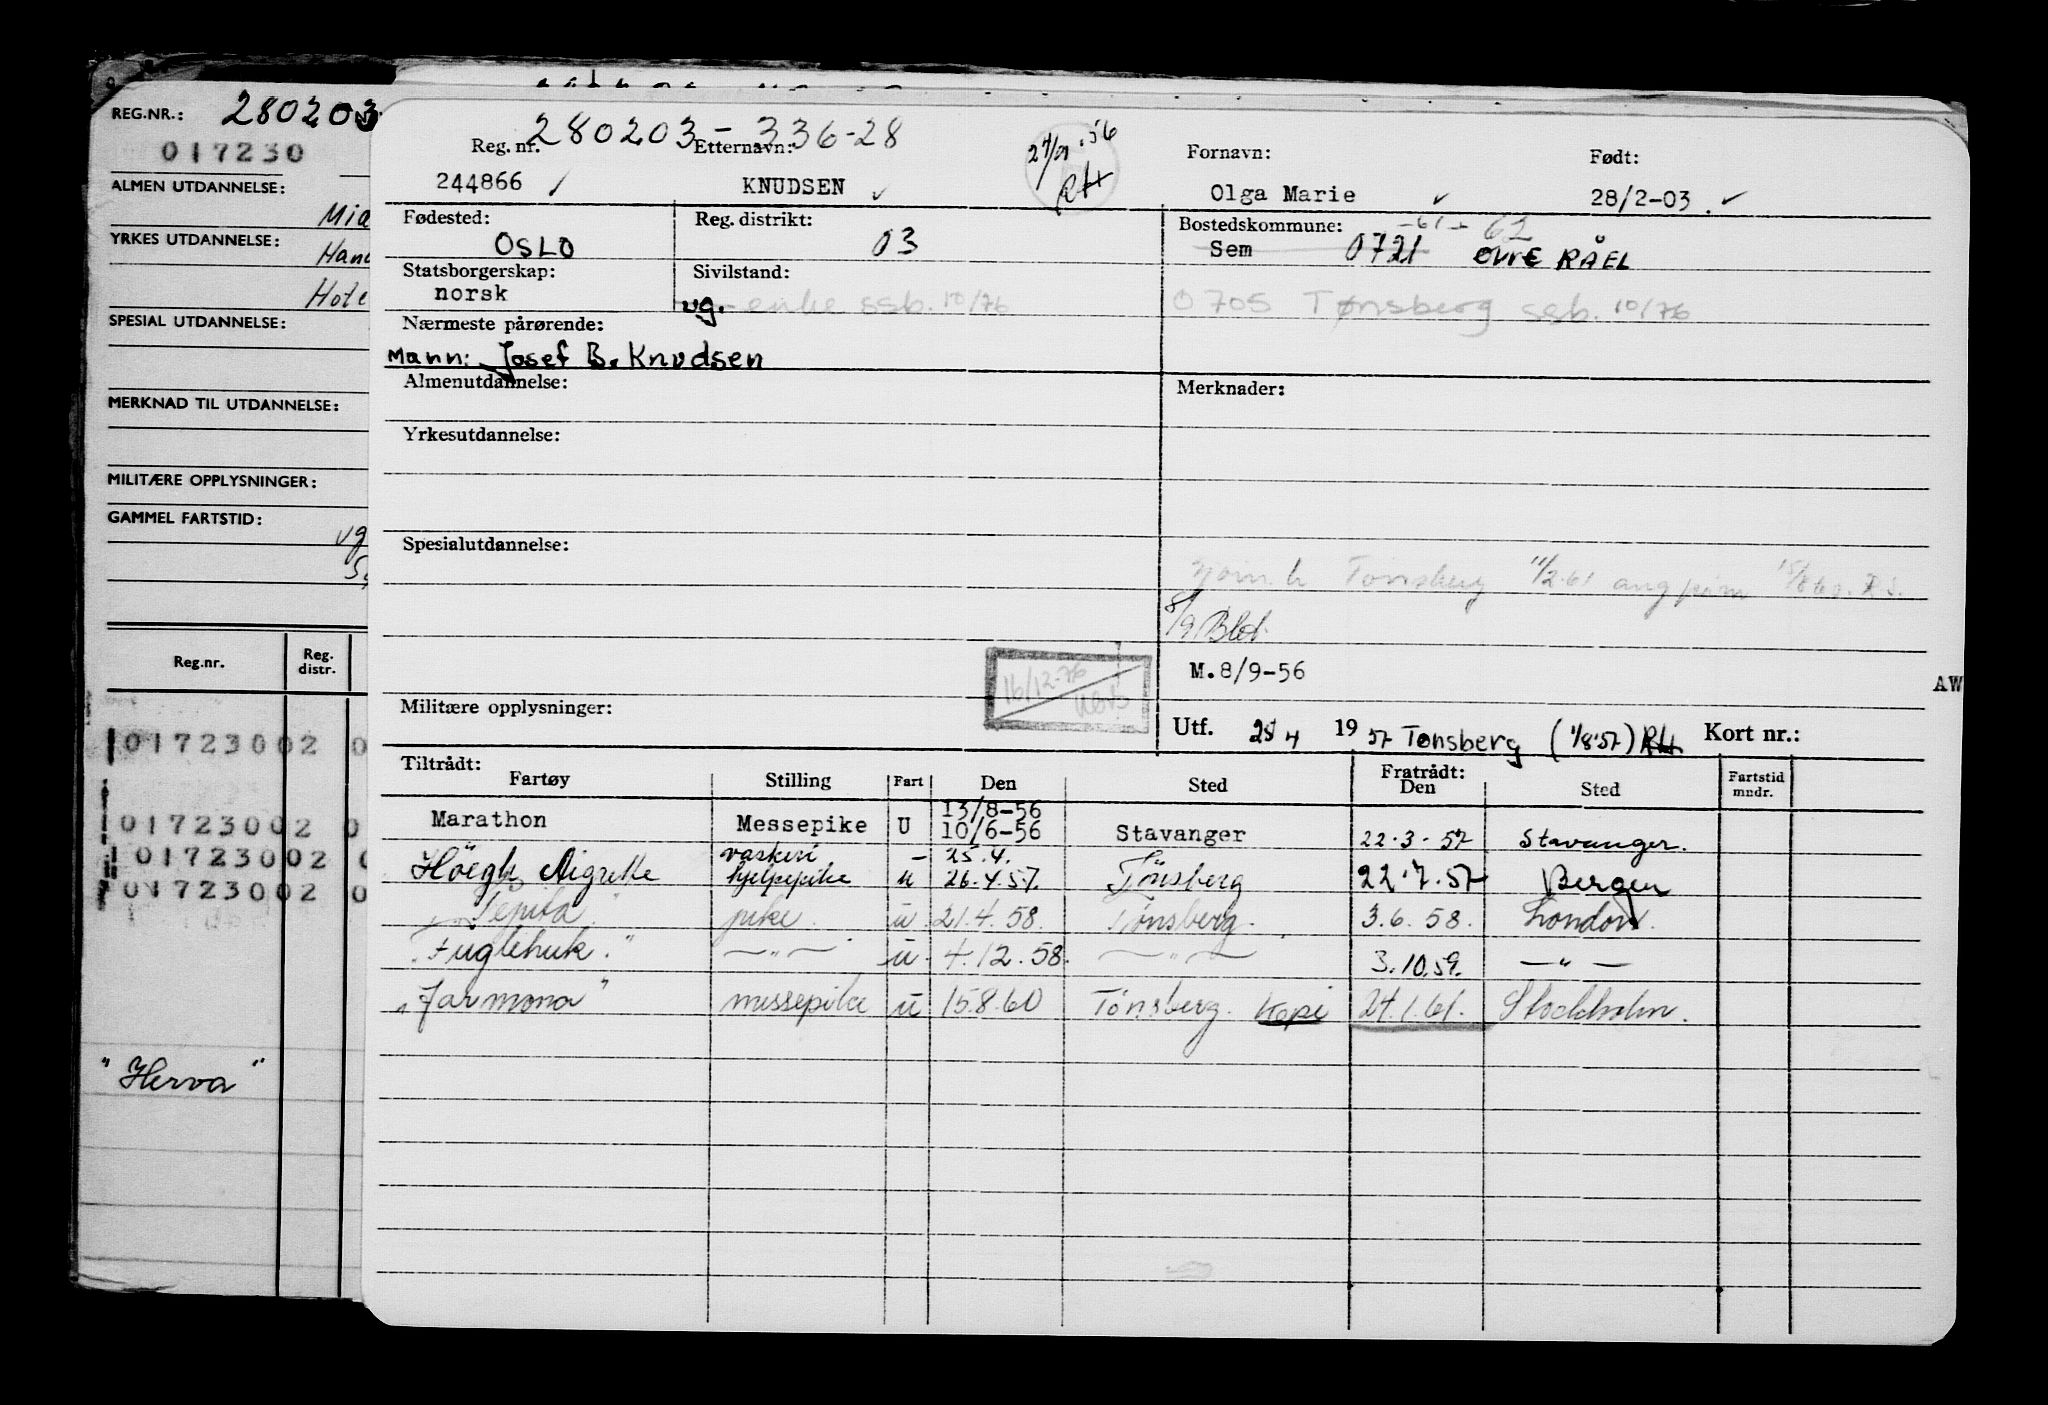 REG.NR.: 280203
017230
ALMEN UTDANNELSE:
YRKES UTDANNELSE:
SPESIAL UTDANNELSE:
MERKNAD TIL UTDANNELSE:
MILITÆRE OPPLYSNINGER:
GAMMEL FARTSTID:
vg
Reg.nr. Reg. distr.
01723002 0
01723002 0
01723002
01723002 0
"Herva"
280203-336-28
Reg. nr. Etternavn: Fornavn: Født:
244866 KNUDSEN Olga Marie 28/2-03
Fødested: Reg. distrikt: Bostedskommune:
OSLO 03 Sem 0721 ØVRE RÅEL
Statsborgerskap: Sivilstand:
norsk vg. enke ssb. 10/76 0705 Tønsberg ssb. 10/76
Nærmeste pårørende:
Mann: Josef B. Knudsen
Almenutdannelse: Merknader:
Yrkesutdannelse:
Spesialutdannelse:
Tønsberg 11/2.61
8/9 Blot.
M.8/9-56
AW
16/12-76
Militære opplysninger:
Utf. 19 57 Tønsberg (1/8'57) RH Kort nr.:
Tiltrådt: Fratrådt:
Fartøy Stilling Fart Den Sted Den Sted Fartstid mndr.
13/8-56
Marathon Messepike U 10/6-56 Stavanger 22.3.57 Stavanger.
vaskeri - 25.4.
Höegh Aigrette hjelpepike u 26.4.57. Tönsberg 22.7.57 Bergen
Pepita" pike. u 21.4.58. Tønsberg. 3.6.58. London.
"Fuglehuk." —"— u. 4.12.58. —"— 3.10.59. —"—
"Farmona" messepike u 15.8.60 Tönsberg. Kopi 24.1.61. Stockholm.